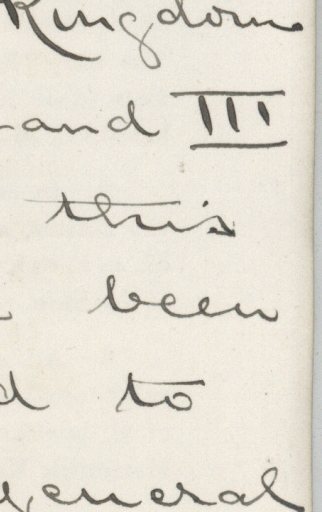 Kingdom
and III
this
been
to
general